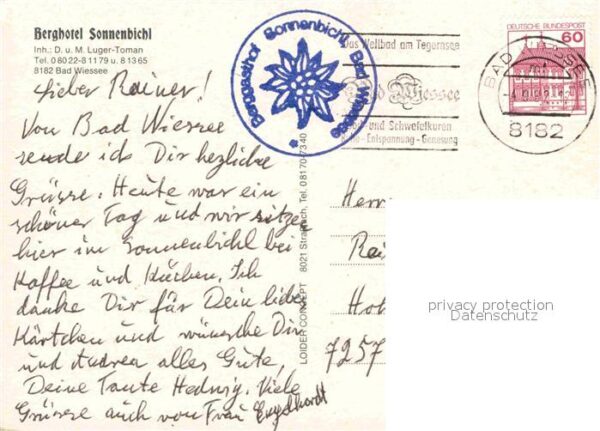 Berghotel Sonnenbichl
Inh.: D. u. M. Luger-Toman
Tel. 08022-81179 u. 81365
8182 Bad Wiessee
Lieber Rainer!
Von Bad Wiessee
sende ich Dir herzliche
Grüsse. Heute war ein
schöner Tag und wir sitzen
hier im Sonnenbichl bei
Kaffee und Kuchen. Ich
danke Dir für Dein liebes
Kärtchen und wünsche Dir
und Andrea alles Gute,
Deine Tante Hedwig. Viele
Grüsse auch von Frau Engelhardt
Berggasthof Sonnenbichl, Bad Wiessee
LOIDER CONCEPT 8021 Straßlach, Tel. 08170-7340
Das Weltbad am Tegernsee
Bad Wiessee
und Schwefelkuren
Entspannung-Genesung
BAD WIESSEE
8182
DEUTSCHE BUNDESPOST
60
Herr
Rai
7257
privacy protection
Datenschutz